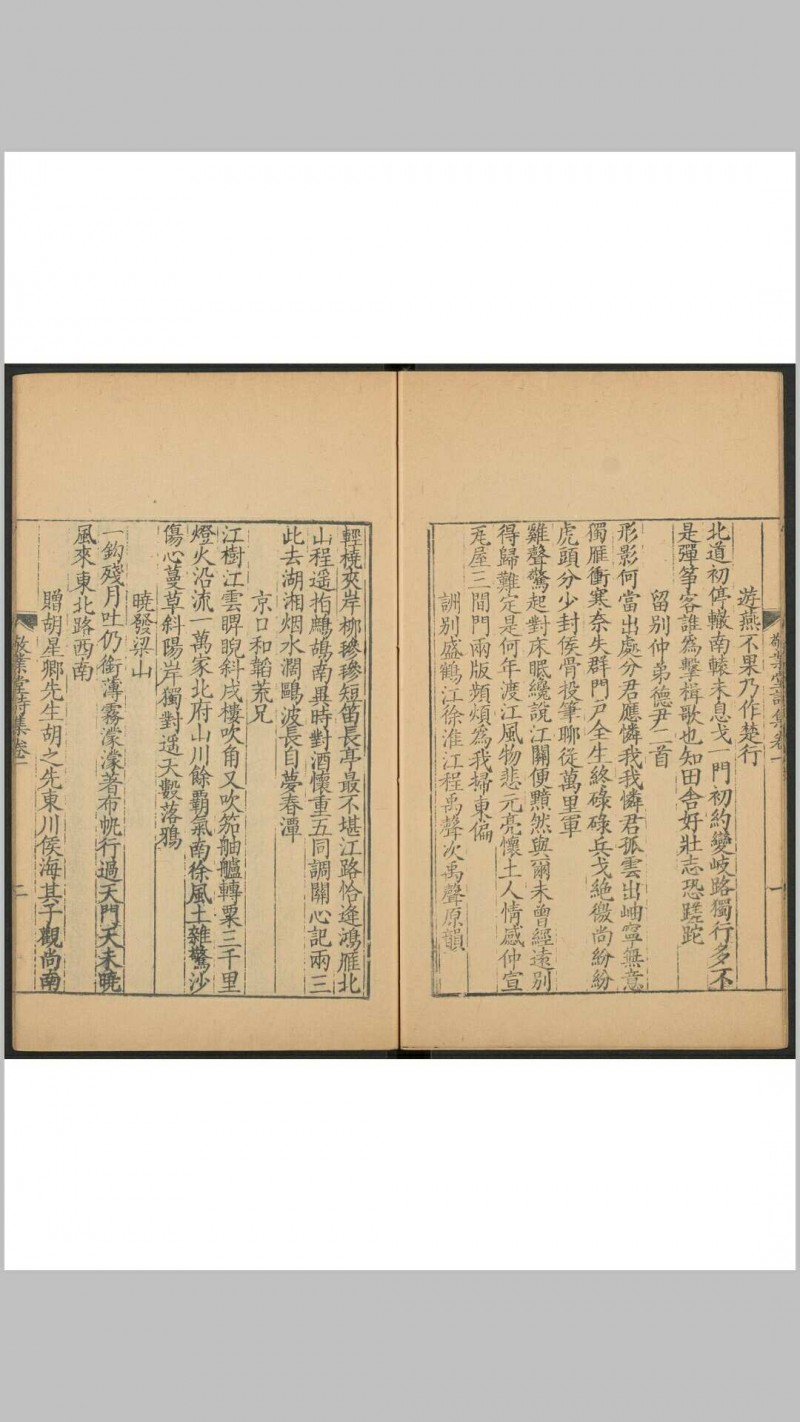 敬業堂詩集卷一
一
遊燕不果乃作楚行
北道初停轍南轅未息戈一門初約變岐路獨行多不
是彈箏客誰為擊楫歌也知田舍好壯志恐蹉跎
留別仲弟德尹二首
形影何當出處分君應憐我我憐君孤雲出岫寧無意
獨雁衝寒奈失群門戶全生終碌碌兵戈絶徼尚紛紛
虎頭分少封侯骨投筆聊從萬里軍
雞聲驚起對床眠纔說江關便黯然與爾未曾經遠別
得歸難定是何年渡江風物悲元亮懷土人情感仲宣
老屋三間門兩版頻煩為我掃東偏
詶別盛鶴江徐淮江程禹聲次禹聲原韻
輕橈夾岸栁毿毿短笛長亭最不堪江路恰逢鴻雁北
山程遥指鷓鴣南異時對酒懷重五同調關心記兩三
此去湖湘烟水濶鷗波長自夢春潭
京口和韜荒兄
江樹江雲睥睨斜戍樓吹角又吹笳舳艫轉粟三千里
燈火沿流一萬家北府山川餘霸氣南徐風土雜驚沙
傷心蔓草斜陽岸獨對遥天數落鴉
曉發梁山
一鈎殘月吐仍銜薄霧濛濛著布帆行過天門天未曉
風來東北路西南
贈胡星卿先生胡之先東川侯海其子觀尚南
敬業堂詩集卷一
二